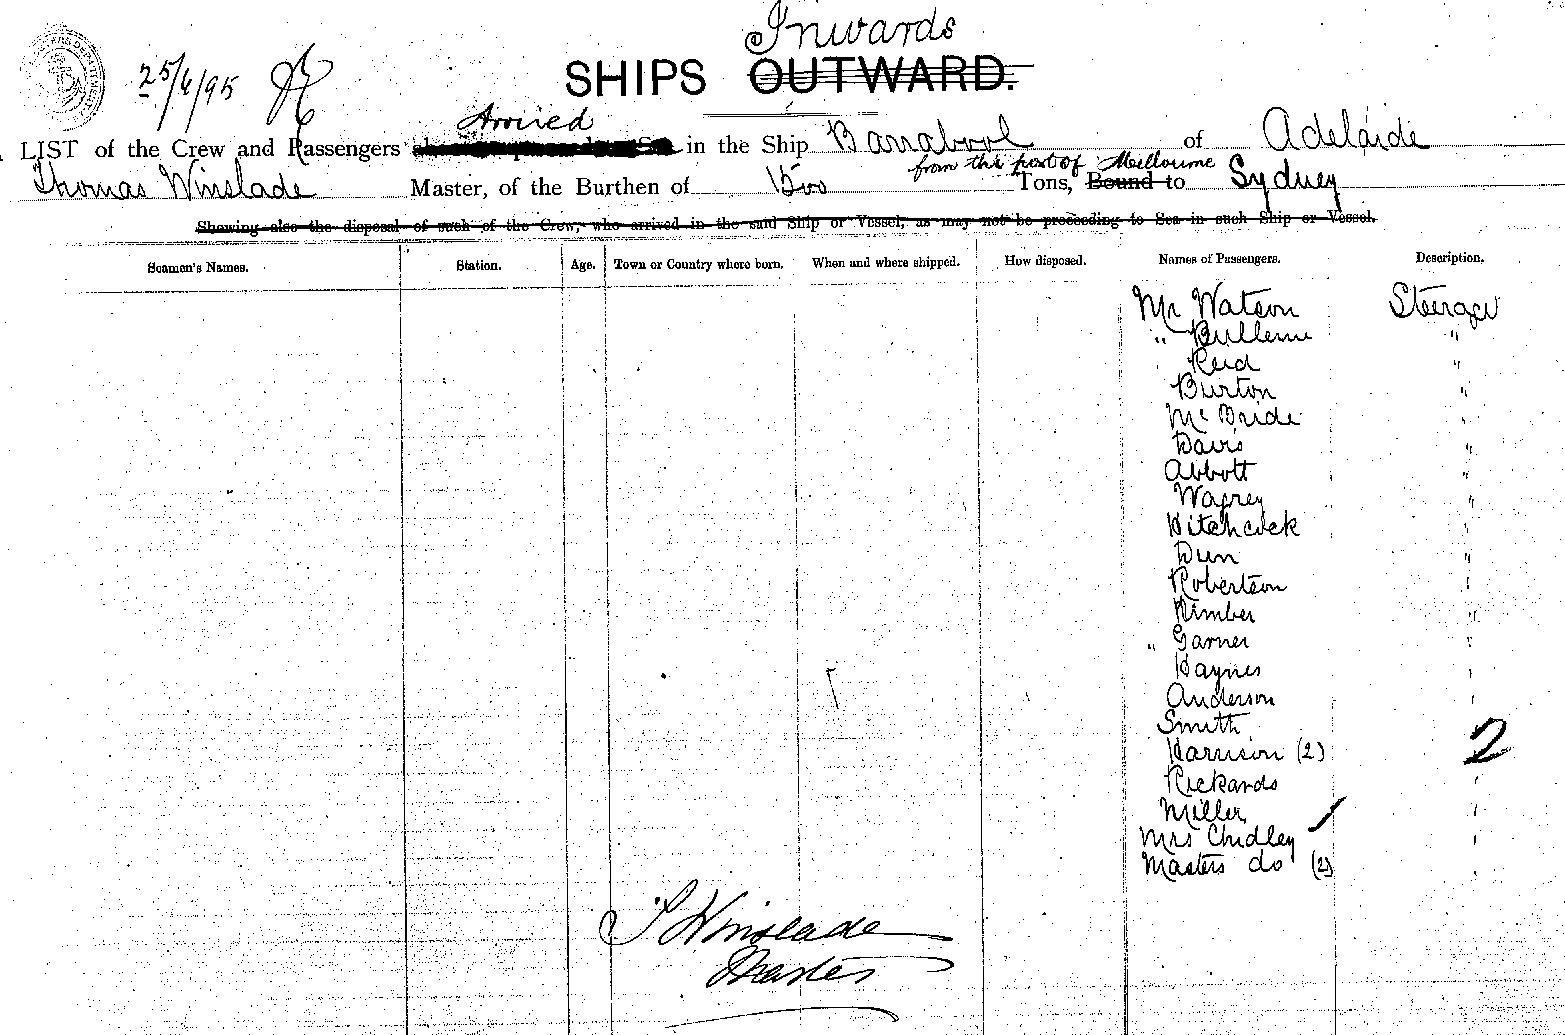 Inwards
25/6/95
SHIPS OUTWARD.
Arrived
LIST of the Crew and Passengers in the Ship Barrabool of Adelaide
from the port of Melbourne
Thomas Winslade Master, of the Burthen of 1500 Tons, Bound to Sydney
Showing also the disposal of such of the Crew, who arrived in the said Ship or Vessel, as may not be proceeding to Sea in such Ship or Vessel.
Seamen's Names. Station. Age. Town or Country where born. When and where shipped. How disposed. Names of Passengers. Description.
Mr Watson Steerage
" "
Reid "
Burton "
McBride "
Davis "
Abbott "
"
Hitchcock "
Dun "
Robertson "
Kimber "
" Garner "
Haynes "
Anderson "
Smith
Harrison (2) 2
Rickards "
Miller "
Mrs Chidley "
Masters do (2) "
T Winslade
Master